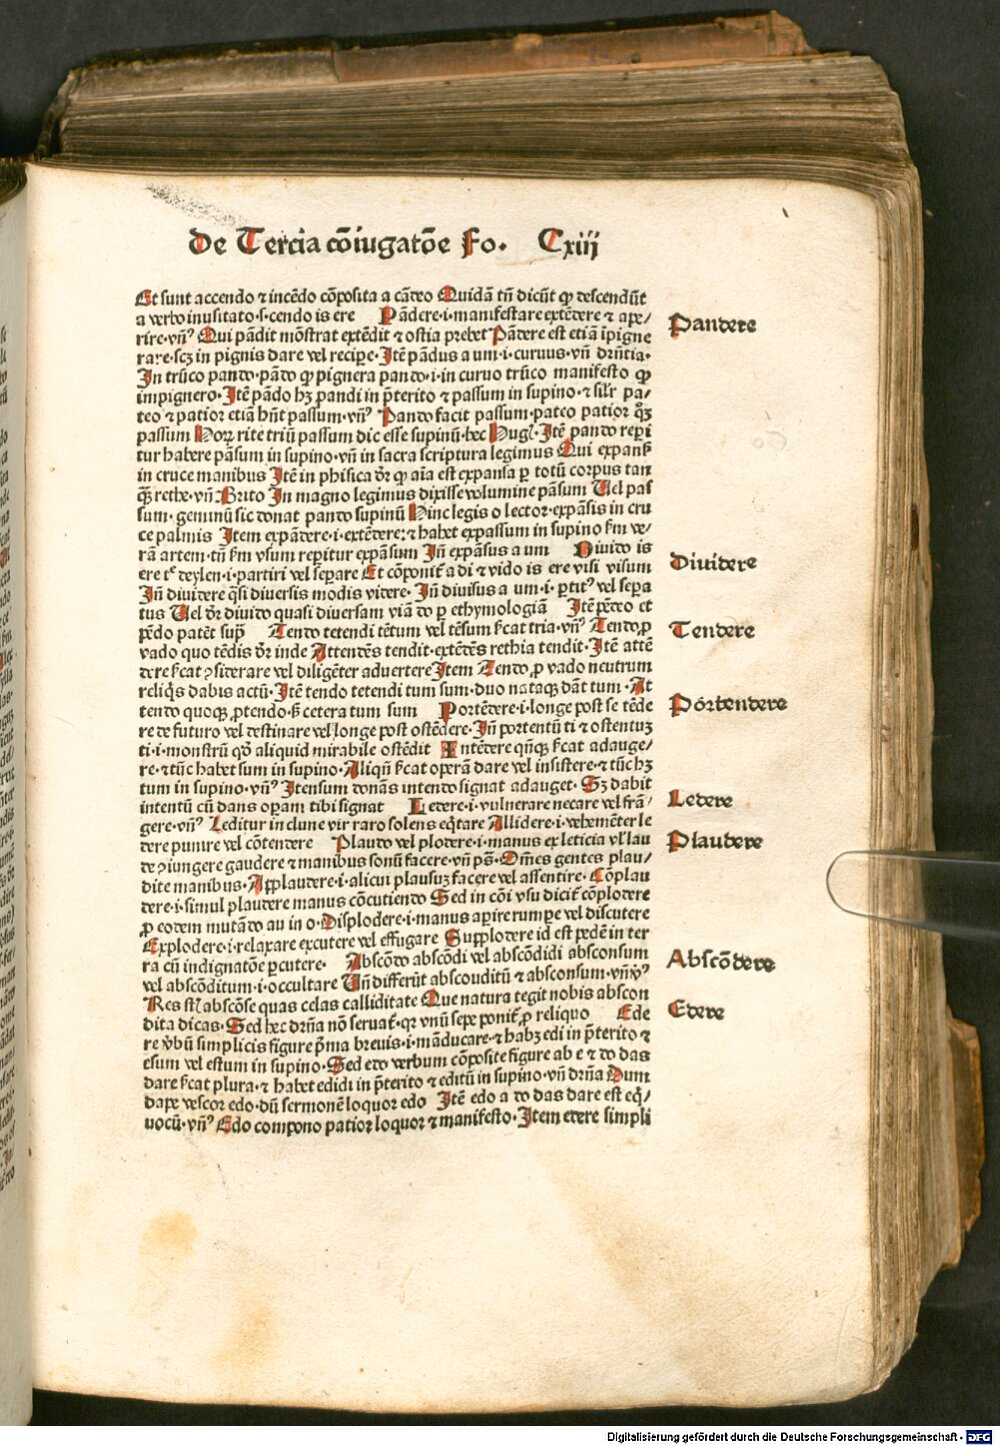 De Tercia cōiugatōe Fo. Cxiij
Et sunt accendo ⁊ incēdo cōposita a cādeo Quidā tn̄ dicūt ꝙ descendūt
a verbo inusitato·s·cendo is ere Pādere·i·manifestare extēdere ⁊ ape/
rire·vn̄ꝰ Qui pādit mōstrat extēdit ⁊ ostia prebet Pādere est etiā ipigne
rare·scꝫ in pignis dare vel recipe·Itē pādus a um·i·curuus·vn̄ drn̄tia·
In trūco pando·pādo ꝙ pignera pando·i·in curuo trūco manifesto ꝙ
impignero·Itē pādo hꝫ pandi in p̄terito ⁊ passum in supino·⁊ silr pa·
teo ⁊ patior etiā hn̄t passum·vn̄ꝰ Pando facit passum·pateo patior
passum rite triū passum dic esse supinū·hec Hugl·Itē pando repi
tur habere pāsum in supino·vn̄ in sacra scriptura legimus Qui expans̄
in cruce manibus Itē in phisica dr̄ ꝙ aīa est expansa ꝑ totū corpus tan
rethe·vn̄ Brito In magno legimus dixisse volumine pāsum Uel pas
sum·geminū sic donat pando supinū Hinc legis o lector·expāsis in cru
ce palmis Item expādere·i·extēdere:⁊ habet expassum in supino s̄m ve/
rā artem·tn̄ s̄m vsum reꝑitur expāsum Jn̄ expāsus a um Diuido is
ere deylen·i·partiri vel seꝑare Et cōponit̄ a di ⁊ vido is ere visi visum
Jn̄ diuidere q̄si diuersis modis videre·Jn̄ diuisus a um·i·ꝑtitꝰ vel seꝑa
tus Uel dr̄ diuido quasi diuersam viā do ꝑ ethymologiā Itē pēdeo et
pēdo patēt sup̄ Tendo tetendi tētum vel tēsum s̄cat tria·vn̄ꝰ Tendo ꝓ
vado quo tēdis dr̄ inde Attendēs tendit·extēdēs rethia tendit·Itē attē
dere s̄cat ꝯsiderare vel diligēter aduertere Item Tendo ꝓ vado neutrum
reliq̄s dabis actū·Itē tendo tetendi tum sum·duo nataꝙ dāt tum·At
tendo quoqꝫ ꝓtendo·s̄ cetera tum sum Portēdere·i·longe post se tēde
re de futuro vel destinare vel longe post ostēdere·Jn̄ portentū ti ⁊ ostentuꝫ
ti·i·monstrū qd̄ aliquid mirabile ostēdit Intēdere qn̄qꝫ s̄cat adauge/
re·⁊ tūc habet sum in supino·Aliqn̄ s̄cat operā dare vel insistere·⁊ tūc hꝫ
tum in supino·vn̄ꝰ Itensum donās intendo signat adauget·Sꝫ dabit
intentū cū dans operam tibi signat Ledere·i·vulnerare necare vel frā/
gere·vn̄ꝰ Leditur in clune vir raro solens eq̄tare Allidere·i·vehemēter le
dere punire vel cōtendere Plaudo vel plodere·i·manus ex leticia vl lau
de ꝯiungere gaudere ⁊ manibus sonū facere·vn̄ ps̄·Om̄es gentes plau/
dite manibus·Applaudere·i·alicui plausuꝫ facere vel assentire·Cōplau
dere·i·simul plaudere manus cōcutiendo Sed in cōi vsu dicit̄ cōplodere
ꝓ eodem mutādo au in o·Displodere·i·manus aꝑire rumꝑe vel discutere
Explodere·i·relaxare excutere vel effugare Supplodere id est pedē in ter
ra cū indignatōe ꝑcutere· Abscōdo abscōdi vel abscōdidi absconsum
vel abscōditum·i·occultare Un̄ differūt absconditū ⁊ absconsum·vn̄
Res abscōse quas celas calliditate Que natura tegit nobis abscon
dita dicas·Sed hec drn̄a nō seruat̄·qr vnū sepe ponit̄ ꝓ reliquo Ede
re v̄bū simplicis figure p̄ma breuis·i·māducare·⁊ habꝫ edi in p̄terito ⁊
esum vel estum in supino·Sed edo verbum cōposite figure ab e ⁊ do das
dare s̄cat plura·⁊ habet edidi in p̄terito ⁊ editū in supino·vn̄ drn̄a Dum
dape vescor edo·dū sermonē loquor edo Itē edo a do das dare est eq̄/
uocū·vn̄ꝰ Edo compono patior loquor ⁊ manifesto·Item edere simpli
Pandere
Diuidere
Tendere
Portendere
Ledere
Plaudere
Abscōdere
Edere
Digitalisierung gefördert durch die Deutsche Forschungsgemeinschaft - DFG